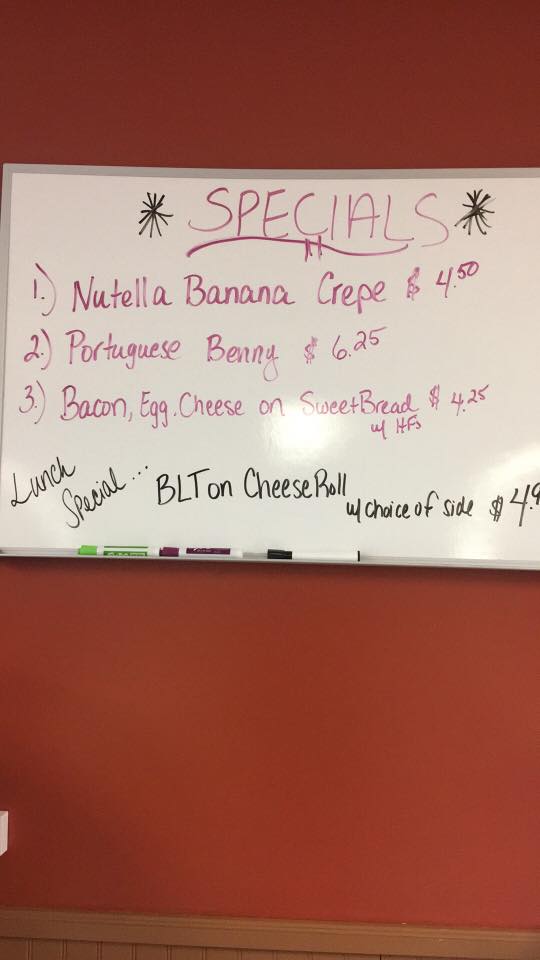 * SPECIALS *
1.) Nutella Banana Crepe $ 4.50
2.) Portuguese Benny $ 6.25
3.) Bacon, Egg. Cheese on SweetBread $ 4.25
w/ HFs
Lunch
Special...
BLT on Cheese Roll
w/ choice of side $4.9